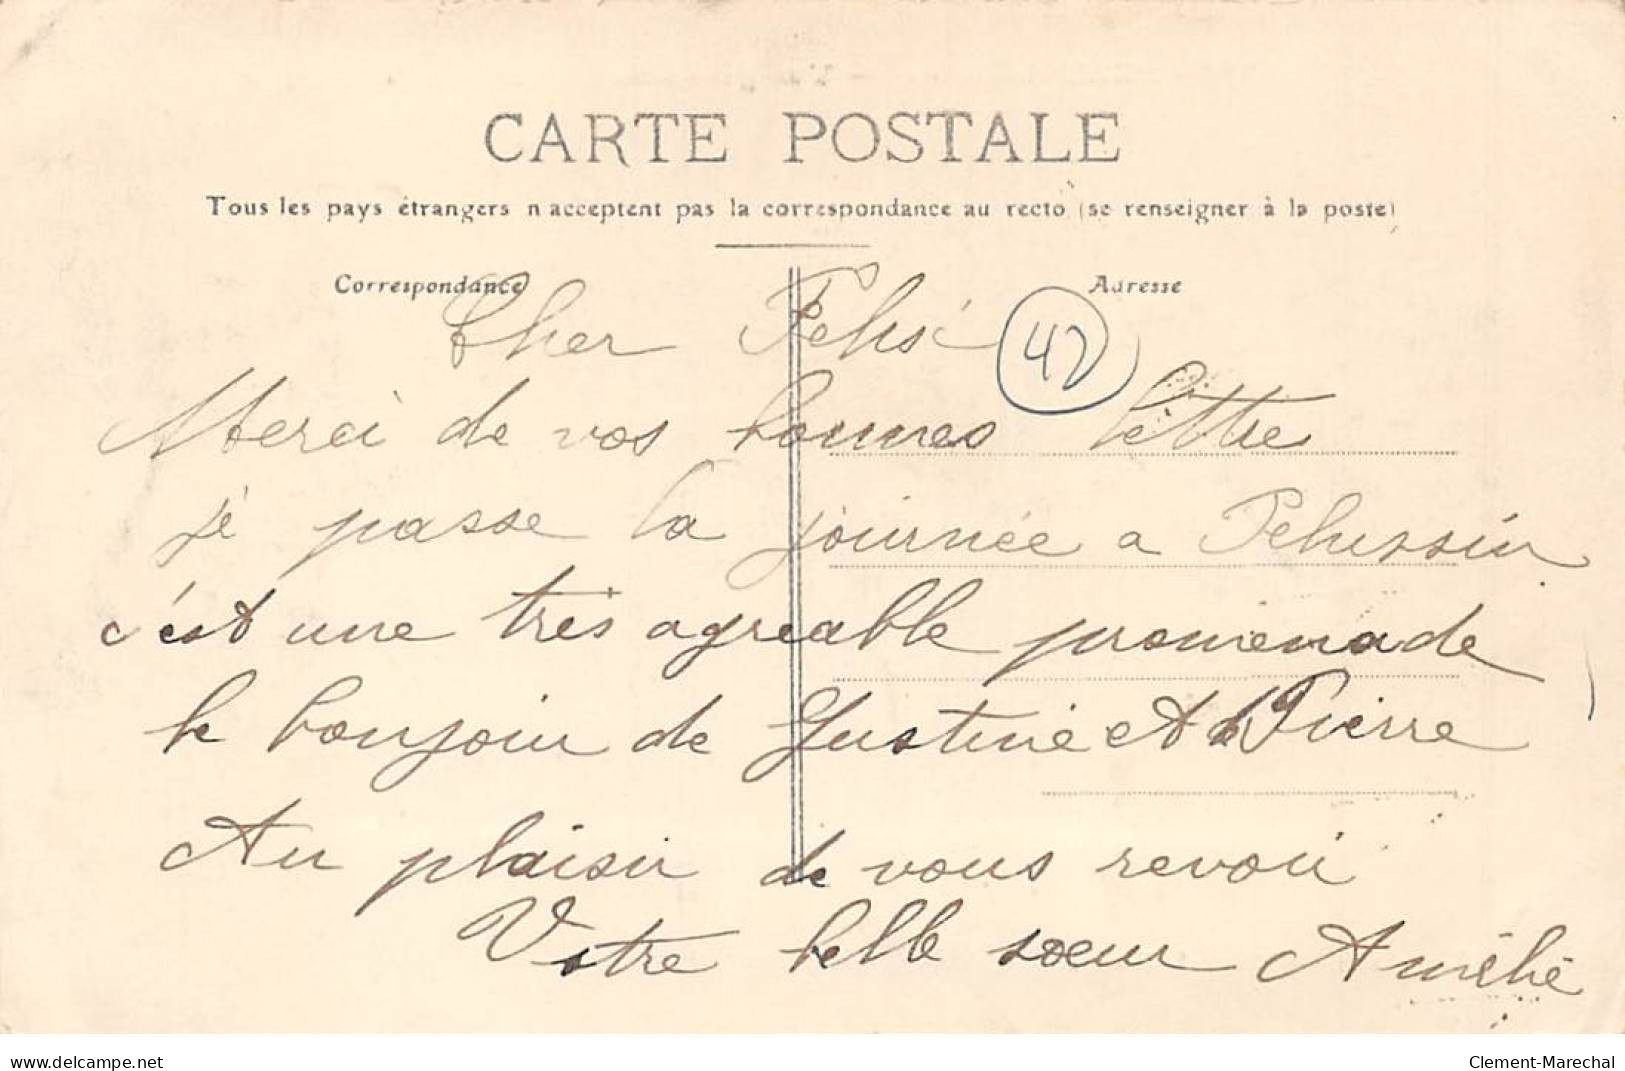 CARTE POSTALE
Tous les pays étrangers n'acceptent pas la correspondance au recto (se renseigner à la poste)
Correspondance
Adresse
Cher Felisé
42
Merci de vos bonnes lettre
je passe la journée a Pelussin
c'est une très agréable promenade
le bonjour de Justine et Pierre
Au plaisir de vous revoir
Votre belle sœur Amélie
www.delcampe.net
Clement-Marechal